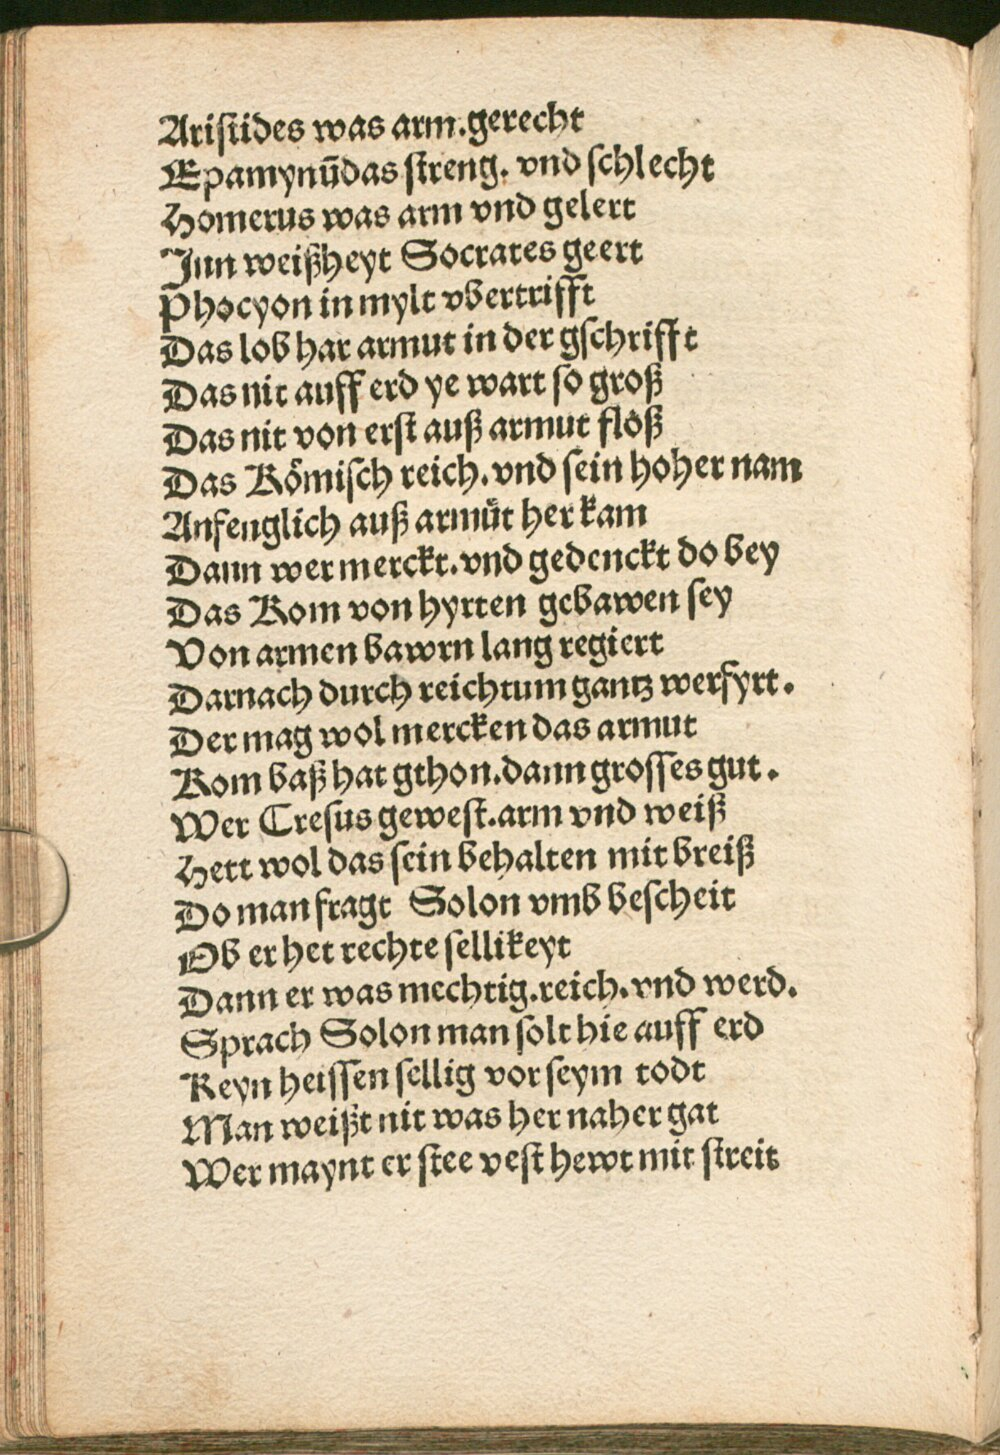 Aristides was arm.gerecht
Epamynūdas streng. vnd schlecht
Homerus was arm vnd gelert
Jnn weißheyt Socrates geert
Phocyon in mylt vbertrifft
Das lob har armut in der gschrifft
Das nit auff erd ye wart so groß
Das nit von erst auß armut floß
Das Römisch reich.vnd sein hoher nam
Anfenglich auß armůt her kam
Dann wer merckt.vnd gedenckt do bey
Das Rom von hyrten gebawen sey
Von armen bawrn lang regiert
Darnach durch reichtum gantz werfyrt.
Der mag wol mercken das armut
Rom baß hat gthon.dann grosses gut.
Wer Cresus gewest.arm vnd weiß
Hett wol das sein behalten mit breiß
Do man fragt Solon vmb bescheit
Ob er het rechte sellikeyt
Dann er was mechtig.reich.vnd werd.
Sprach Solon man solt hie auff erd
Keyn heissen sellig vor seym todt
Man weißt nit was her naher gat
Wer maynt er stee vest hewt mit streit